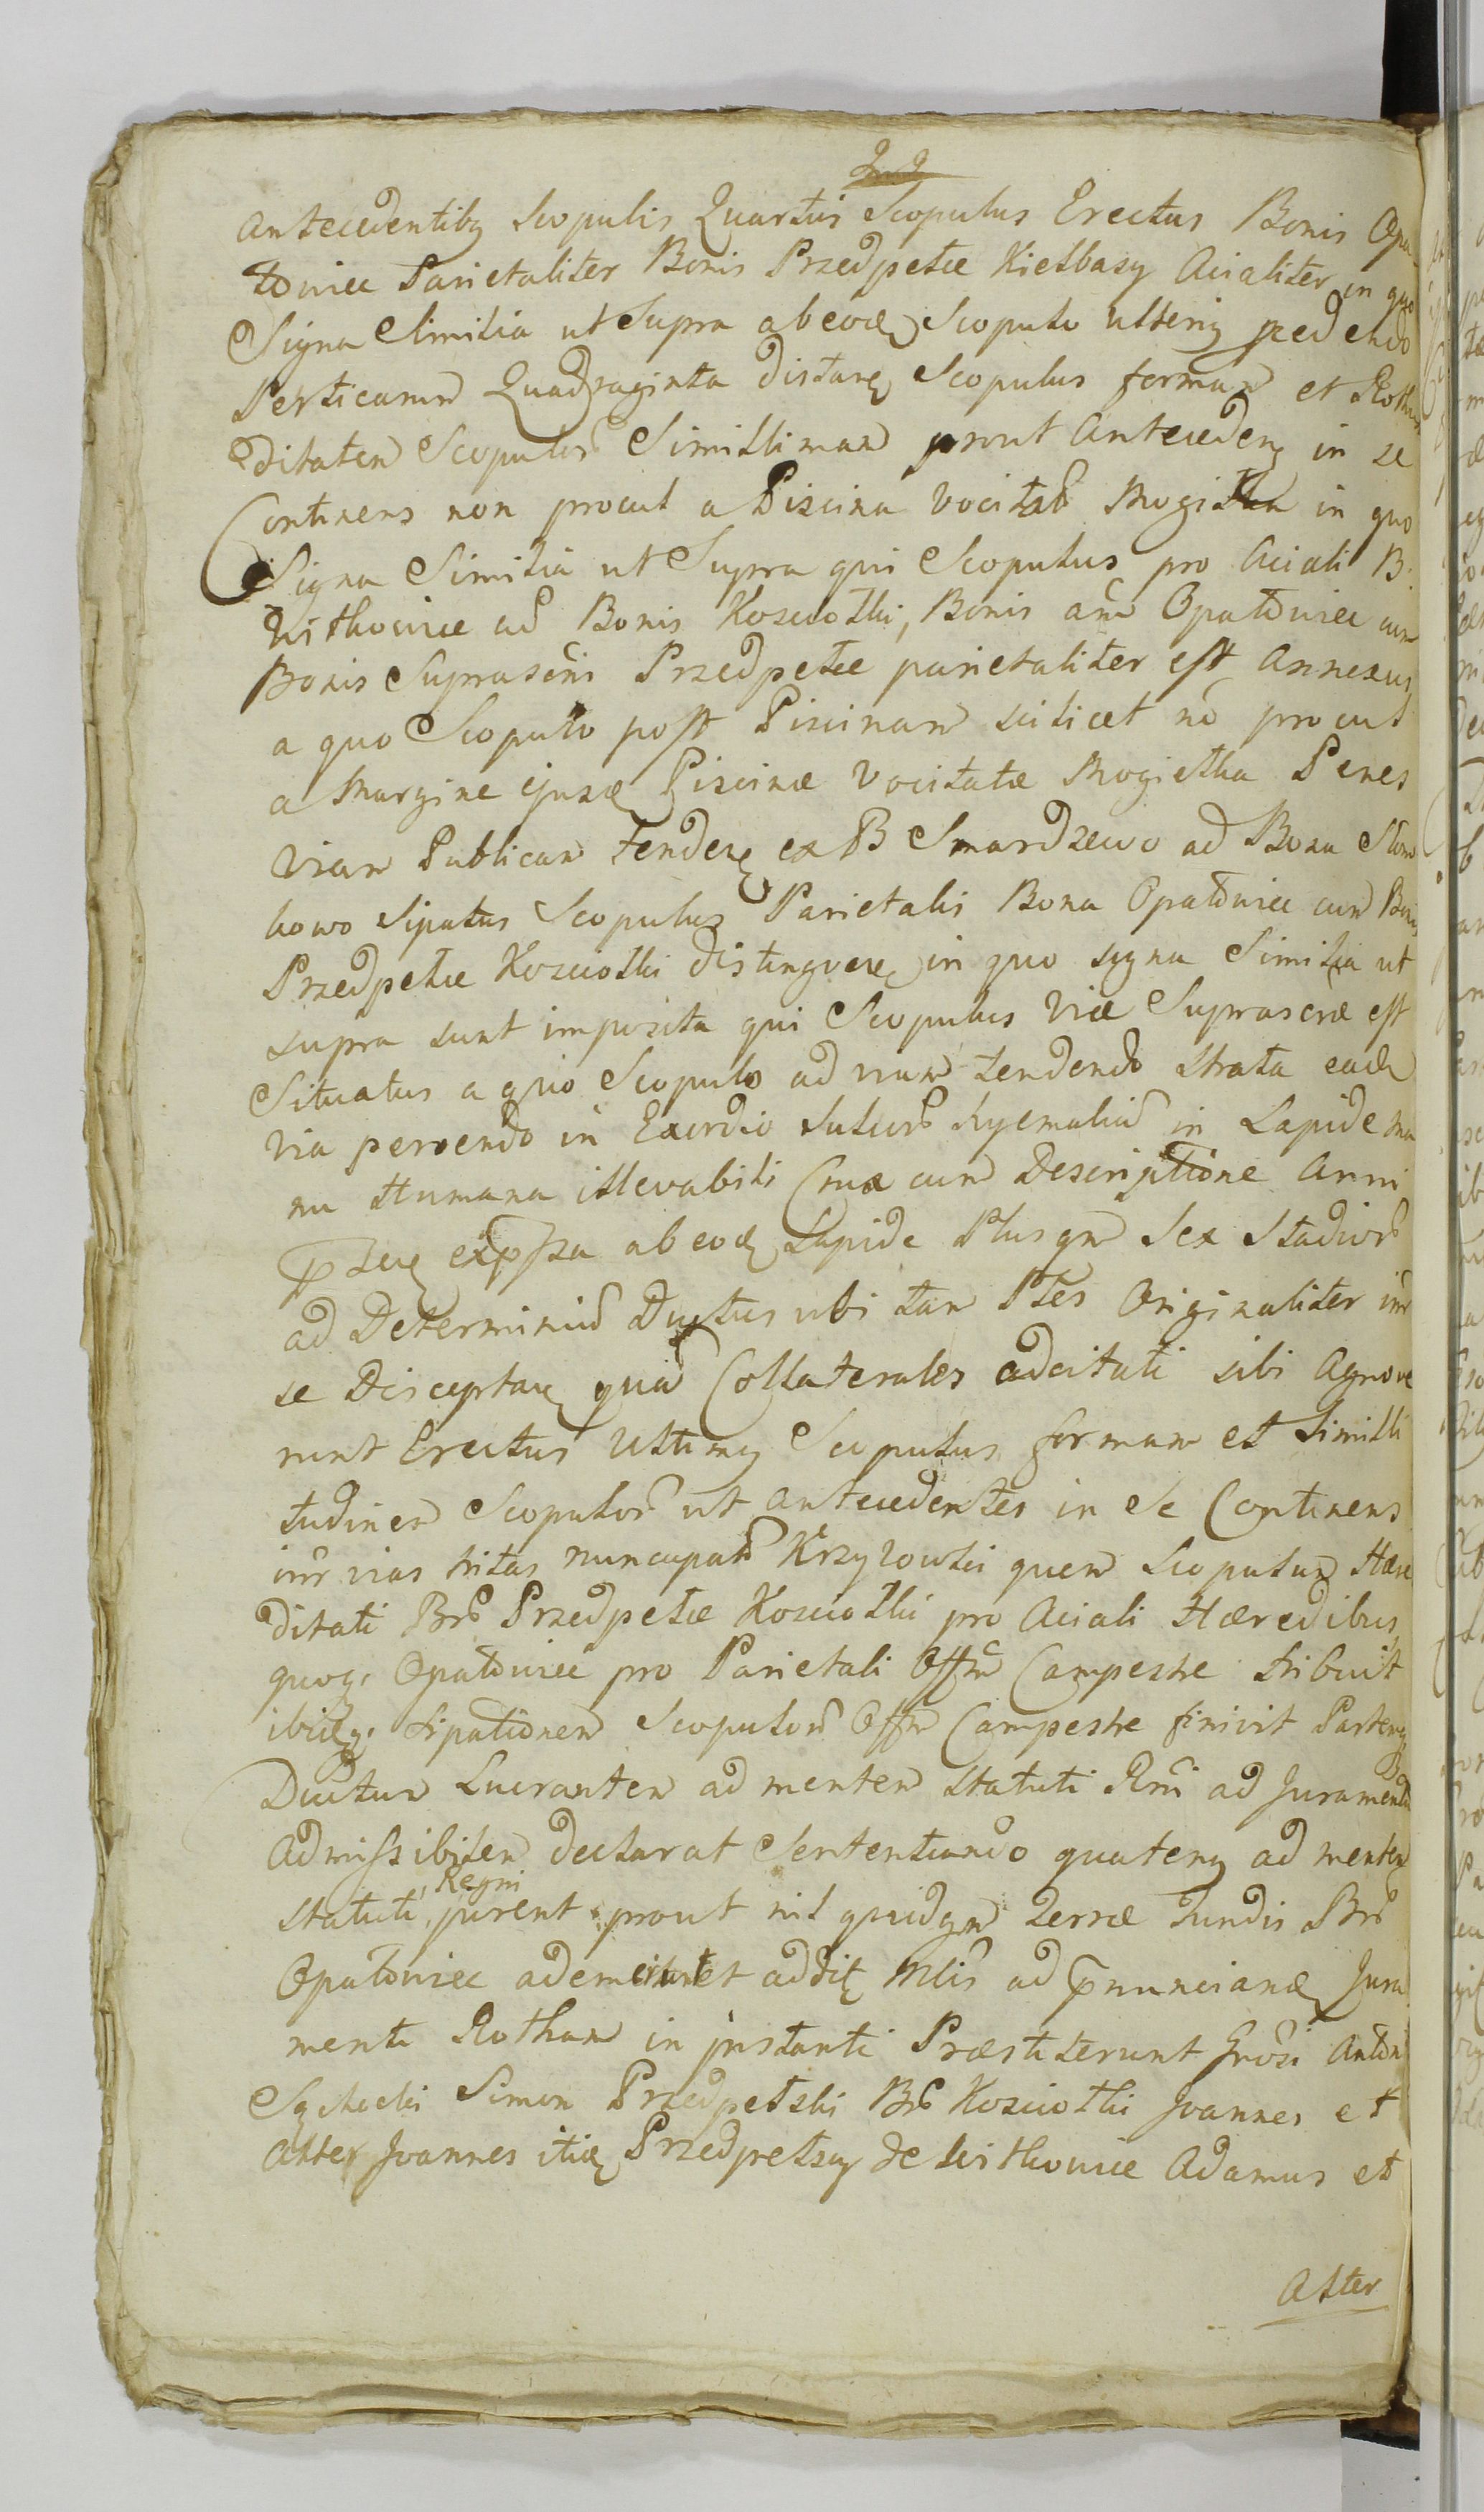 Antecedentibq Scopulis Quartus Scopulus Erectus Bonis Opa
towiec Parietaliter Bonis Przedpełce Kiełbasy Acialiter in quo
Signa Similia ut Supra ab eodę Scopulo ulteriq pcedendo
Perticarum Quadraginta distanę Scopulus formam et
ditatem Scopulor Simillimam prout Antecedenę in se
Continens non procul a Piscina vocitat Mogiłka in quo
Signa Similia ut Supra qui Scopulus pro Aciali B:
Witkowice ad Bonis Kosciołki, Bonis am Opatowiec cum
Bonis Suprascris Przedpełce parietaliter est Annexus
a quo Scopulo post Piscinam scilicet no procul
a Margine ejusdę Piscinæ vocitatæ Mogiełka Penes
viam Publicam tendenę ex B Smardzewo ad Bona Słom
kowo Sipatus Scopulus Parietalis Bona Opatowiec cum Bonis
Przedpełce Kosciołki distingvenę in quo signa Similia ut
supra sunt imposita qui Scopulus viæ Suprascræ est
Situatus a quo Scopulo ad viam tendendo strata eadę
via pervendo in Exordio Sulcor hyemaliu in Lapide ma
nu Humana illevabili Crux cum Descriptione Anni
ptis expssa ab eodę Lapide Plusqm Sex Stadior
ad Determiniu Ductus ubi tam Ptes Originaliter inr
se Disceptanę quã Collaterales adcitati sibi Agnove
runt Erectus Ultimq Scopulus formam et Simili
tudinem Scopulor ut antecedentes in Se Continens
inr vias tritas nuncupatas Krzyzowki quem Scopulum Hære
ditati Bor Przedpełce Kosciołki pro Aciali Hæredibus
quoq. Opatowiec pro Parietali Offm Campestre tribuit
ibidęq. Sipationem Scopulorũ Offm Campestre finivit Partemq
Ductum Lucrantem ad mentem Statuti Rni ad Juramentu
Admissibilem declarat Sententiando quatenq ad mentem
Statuti Regni jurent prout nil quidqm Terræ Fundis Bor
Opatowiec ademerunt et addit Mlis ad pnuncianę Jura
menti Rotham in instanti Præstiterunt Grosi Anton
Simon Przedpełski Bor Kosciołki Joannes et
Alter Joannes itidę Przedpełscy de Witkowice Adamus et
Alter